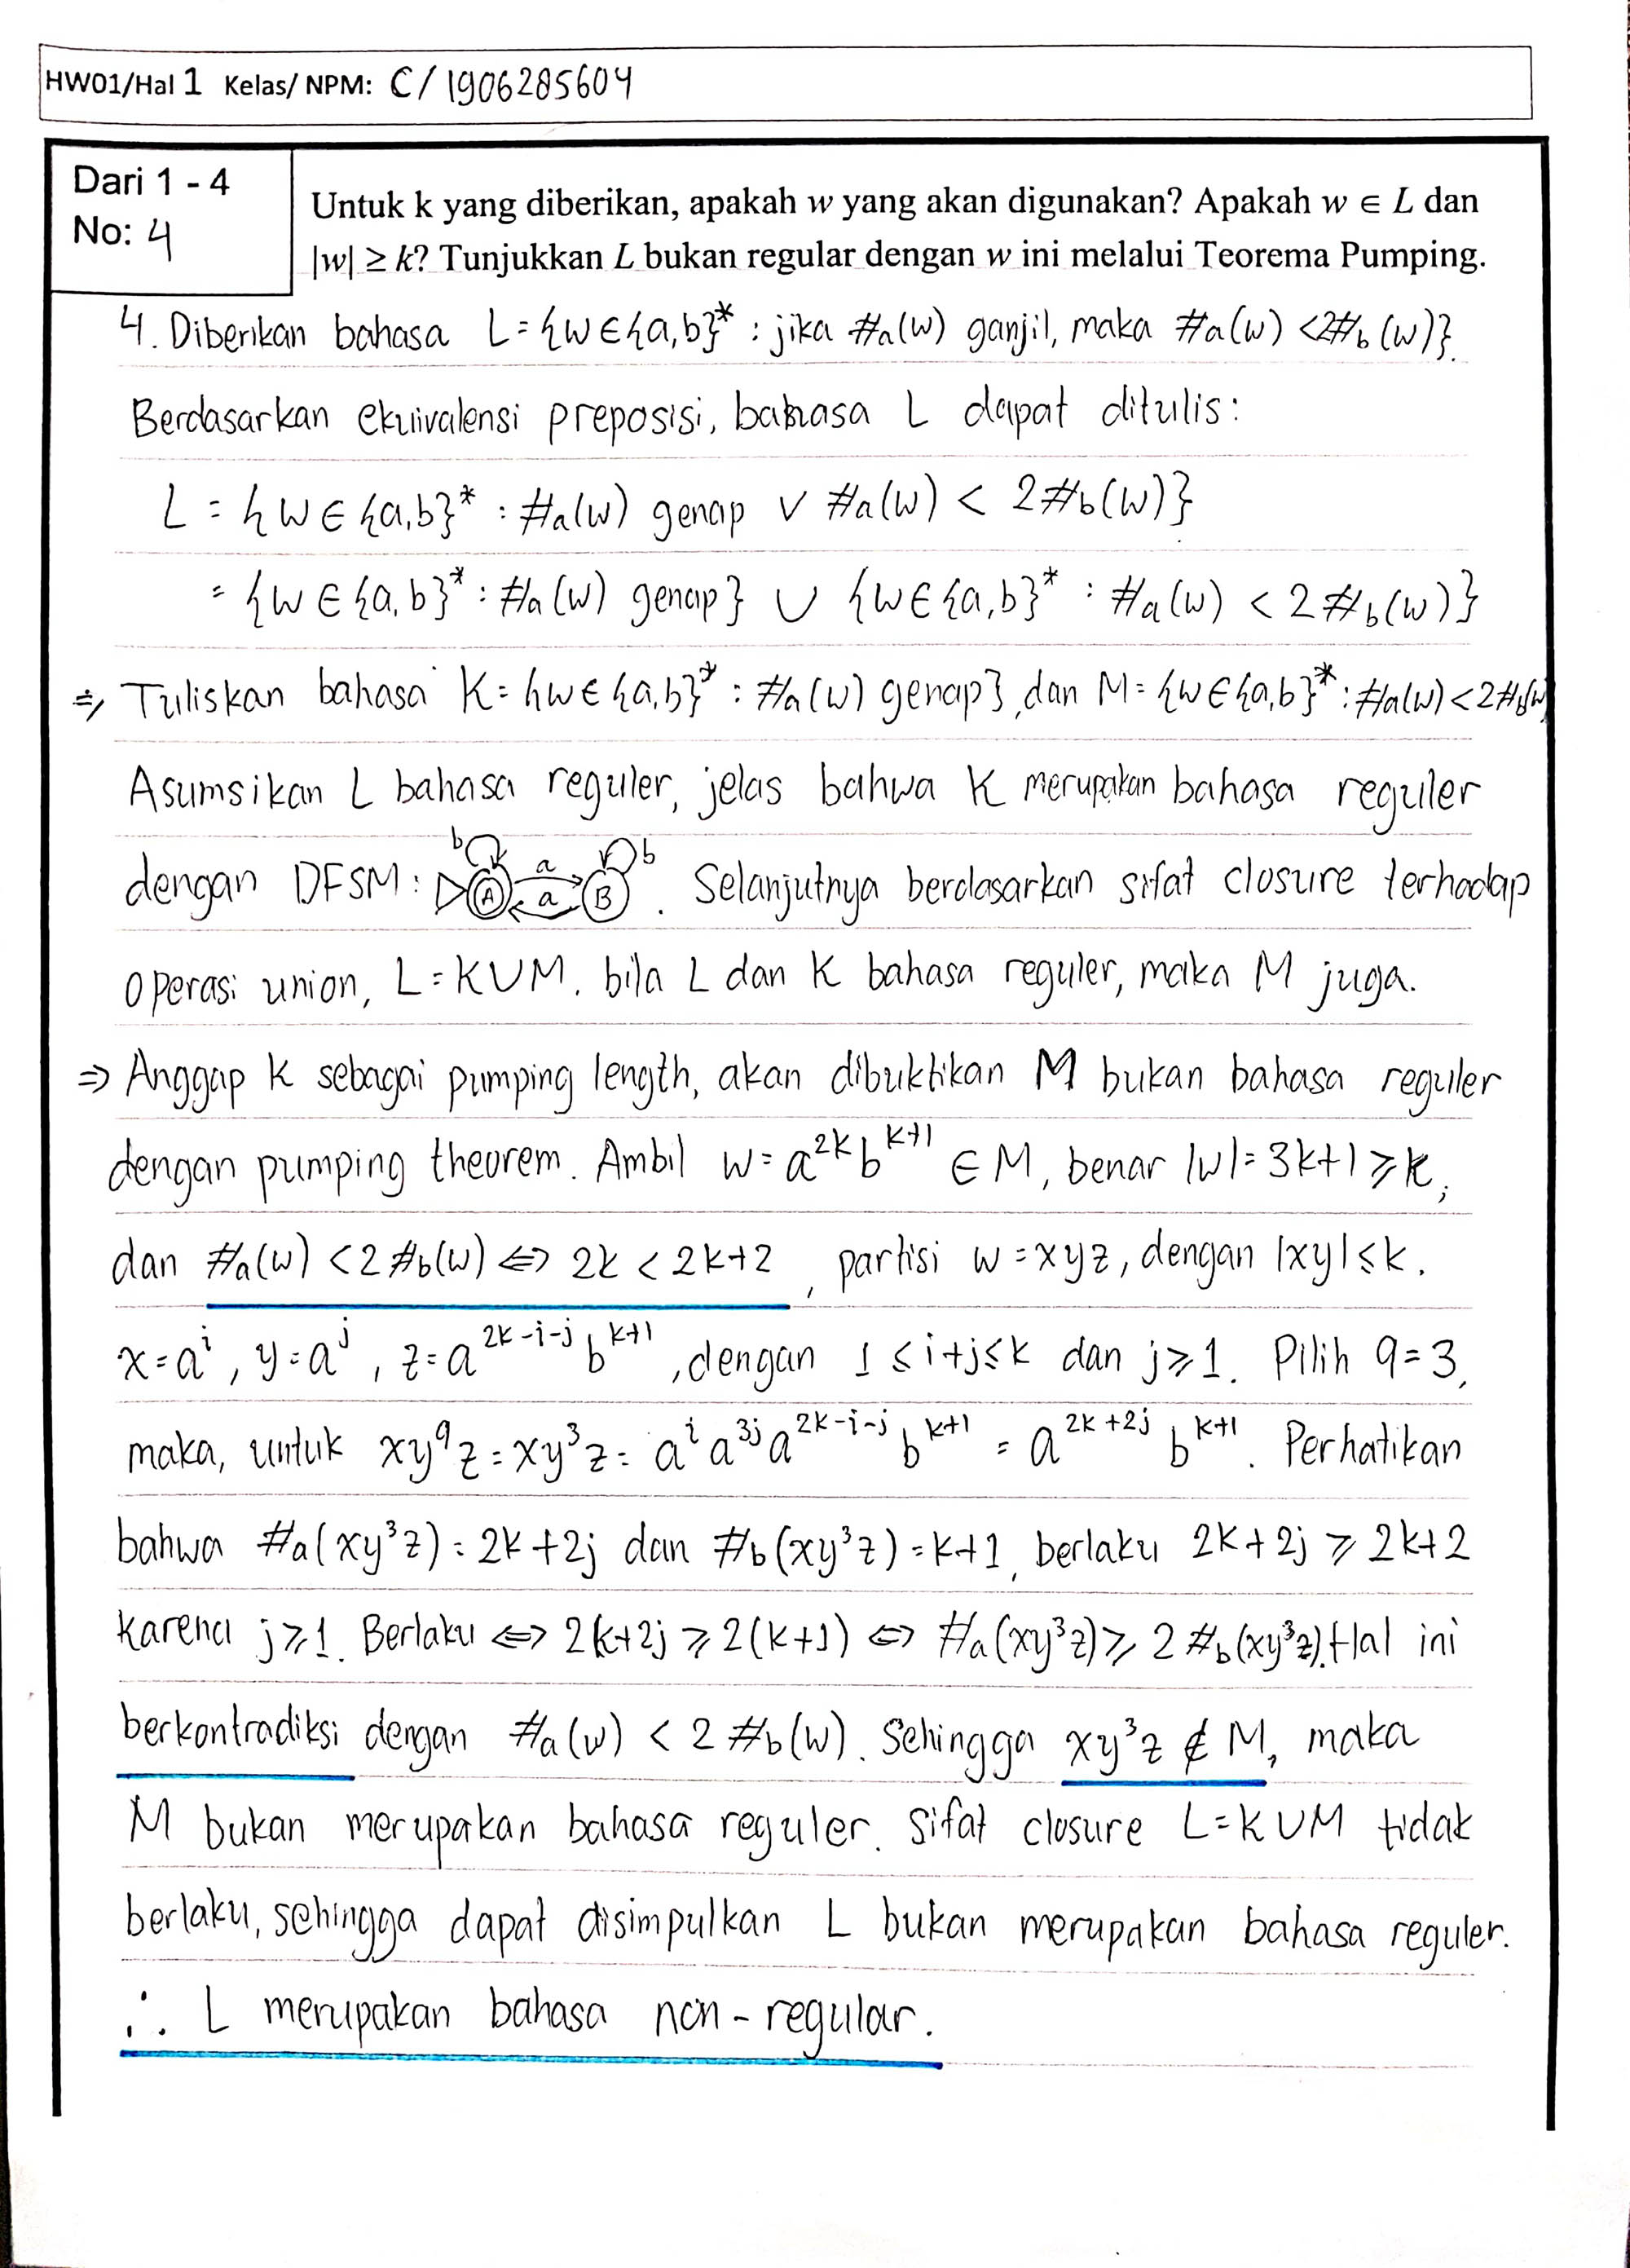 HW01/Hal 1 Kelas/ NPM: C/ 1906285604
Dari 1 - 4
No: 4
Untuk k yang diberikan, apakah w yang akan digunakan? Apakah w ∈ L dan
|w| ≥ k? Tunjukkan L bukan regular dengan w ini melalui Teorema Pumping.
4. Diberikan bahasa L = {w ∈ {a,b}* : jika #a(w) ganjil, maka #a(w) < 2#b(w)}.
Berdasarkan ekuivalensi preposisi, bahasa L dapat ditulis:
L = {w ∈ {a,b}* : #a(w) genap ∨ #a(w) < 2#b(w)}
= {w ∈ {a,b}* : #a(w) genap} ∪ {w ∈ {a,b}* : #a(w) < 2#b(w)}
⇒ Tuliskan bahasa K = {w ∈ {a,b}* : #a(w) genap}, dan M = {w ∈ {a,b}* : #a(w) < 2#b(w)
Asumsikan L bahasa reguler, jelas bahwa K merupakan bahasa reguler
dengan DFSM: b A a a B b . Selanjutnya berdasarkan sifat closure terhadap
operasi union, L = K ∪ M. bila L dan K bahasa reguler, maka M juga.
⇒ Anggap K sebagai pumping length, akan dibuktikan M bukan bahasa reguler
dengan pumping theorem. Ambil w = a^{2k} b^{k+1} ∈ M, benar |w| = 3k+1 ≥ k,
dan #a(w) < 2#b(w) ⇔ 2k < 2k+2, partisi w = xyz, dengan |xy| ≤ k.
x = a^i, y = a^j, z = a^{2k-i-j} b^{k+1}, dengan 1 ≤ i+j ≤ k dan j ≥ 1. Pilih q = 3,
maka, untuk xy^q z = xy³z = a^i a^{3j} a^{2k-i-j} b^{k+1} = a^{2k+2j} b^{k+1}. Perhatikan
bahwa #a(xy³z) = 2k+2j dan #b(xy³z) = k+1, berlaku 2k+2j ≥ 2k+2
karena j ≥ 1. Berlaku ⇔ 2k+2j ≥ 2(k+1) ⇔ #a(xy³z) ≥ 2#b(xy³z). Hal ini
berkontradiksi dengan #a(w) < 2#b(w). Sehingga xy³z ∉ M, maka
M bukan merupakan bahasa reguler. Sifat closure L = K ∪ M tidak
berlaku, sehingga dapat disimpulkan L bukan merupakan bahasa reguler.
∴ L merupakan bahasa non-regular.